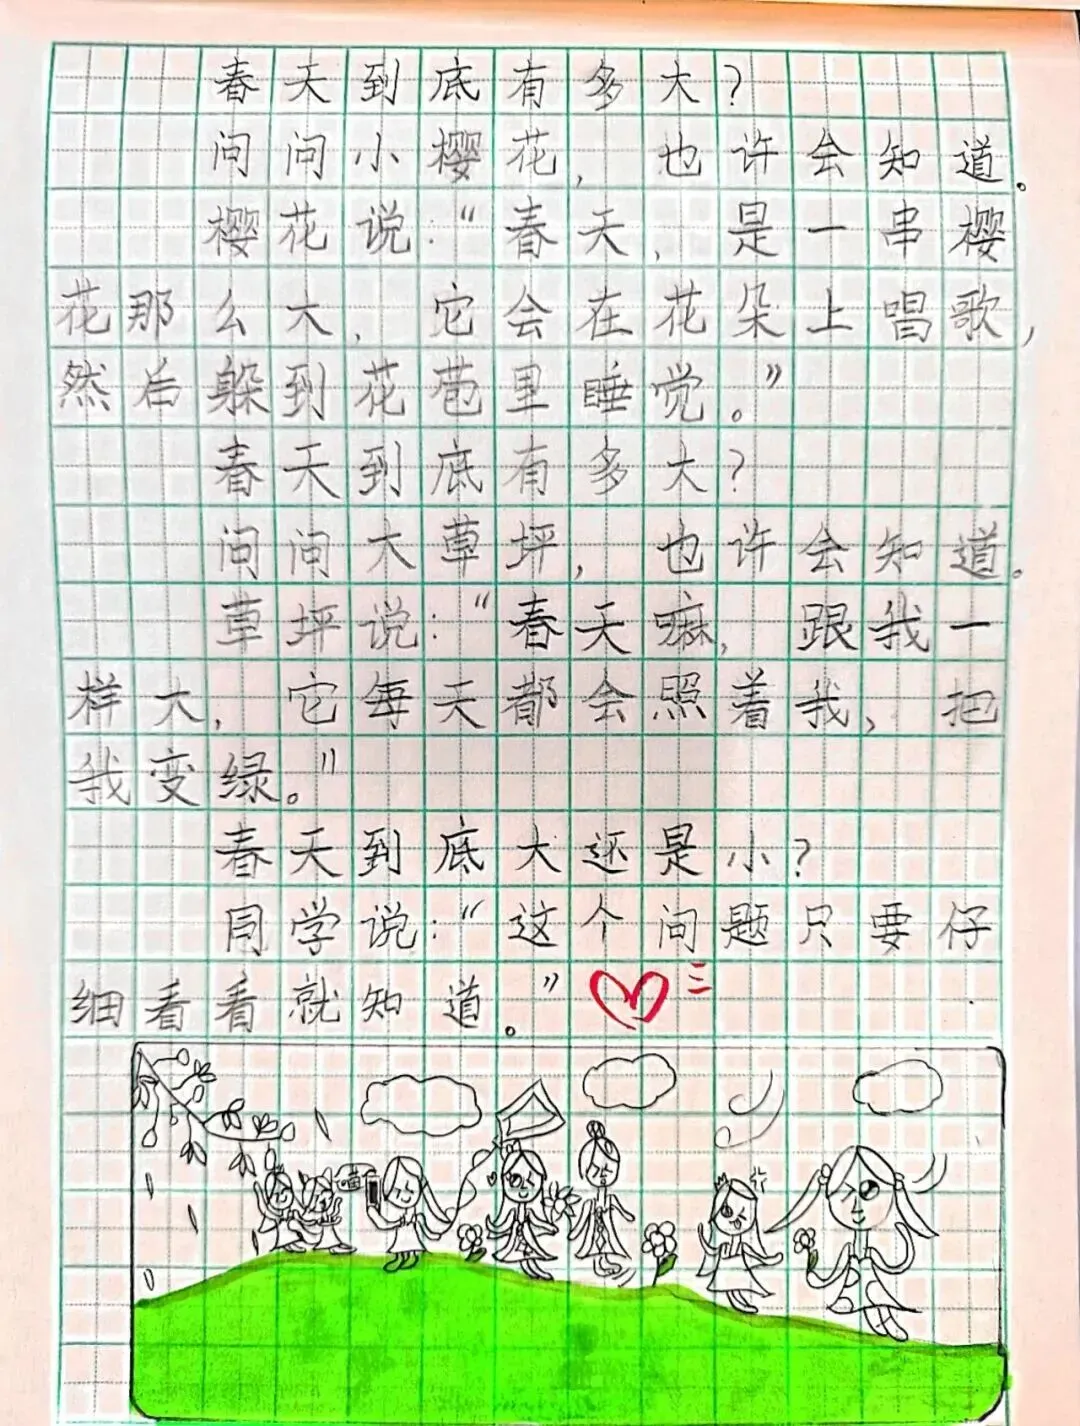 春天到底有多大？
问问小樱花，也许会知道。
樱花说：“春天，是一串樱
花那么大，它会在花朵上唱歌，
然后躲到花苞里睡觉。”
春天到底有多大？
问问大草坪，也许会知道。
草坪说：“春天嘛，跟我一
样大，它每天都会照着我，把
我变绿。”
春天到底大还是小？
同学说：“这个问题只要仔
细看看就知道。”
三